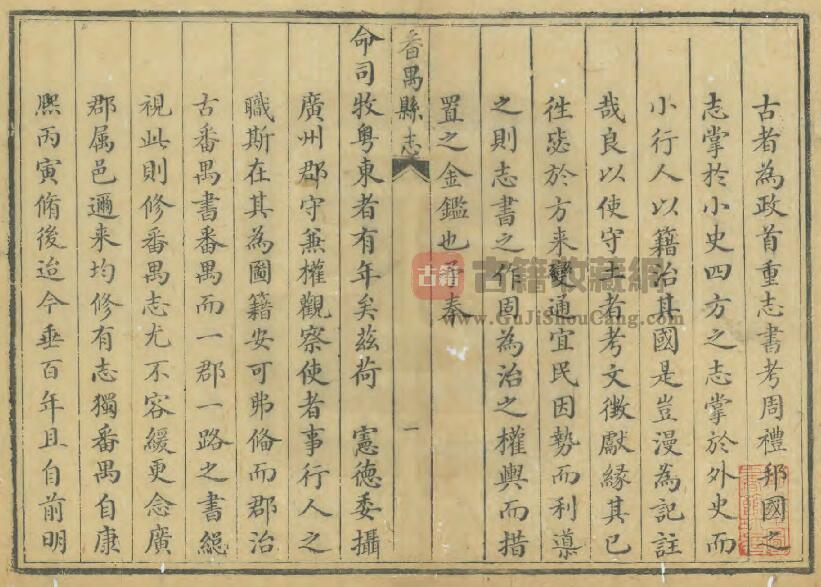 古者為政首重志書考周禮邦國之
志掌於小史四方之志掌於外史而
小行人以籍治其國是豈漫為記註
哉良以使守土者考文徴獻緣其已
徃𢙣於方来變通宜民因勢而利導
之則志書之作固為治之權輿而措
置之金鑑也予奉
番禺縣志
一
命司牧粤東者有年矣茲荷 憲德委攝
廣州郡守兼權觀察使者事行人之
職斯在其為圖籍安可弗脩而郡治
古番禺書番禺而一郡一路之書緫
視此則修番禺志尤不容緩更念廣
郡属邑邇来均修有志獨番禺自康
熈丙寅脩後迨今垂百年且自前明
古籍
古籍收藏網
www.GuJiShouCang.com